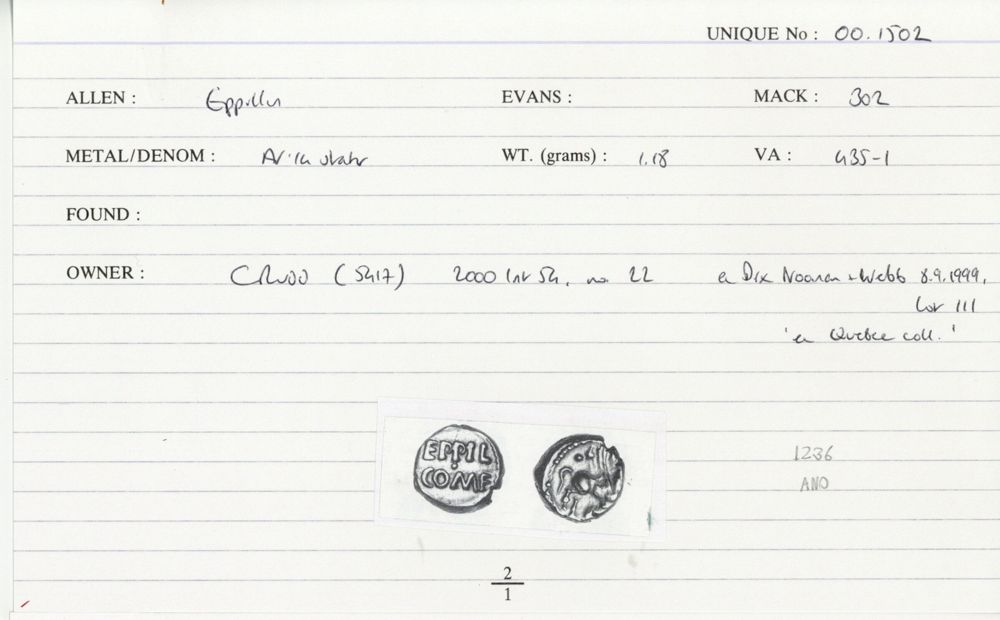 UNIQUE No : 00.1502
ALLEN : Eppillus EVANS : MACK : 302
METAL/DENOM : WT. (grams) : 1.18 VA : 435-1
FOUND :
OWNER : (5417) 2000 54, no. 22 Dix Noonan + Webb 8.9.1999,
Lot 111
coll.'
EPPIL
COMF
1236
ANO
2
1